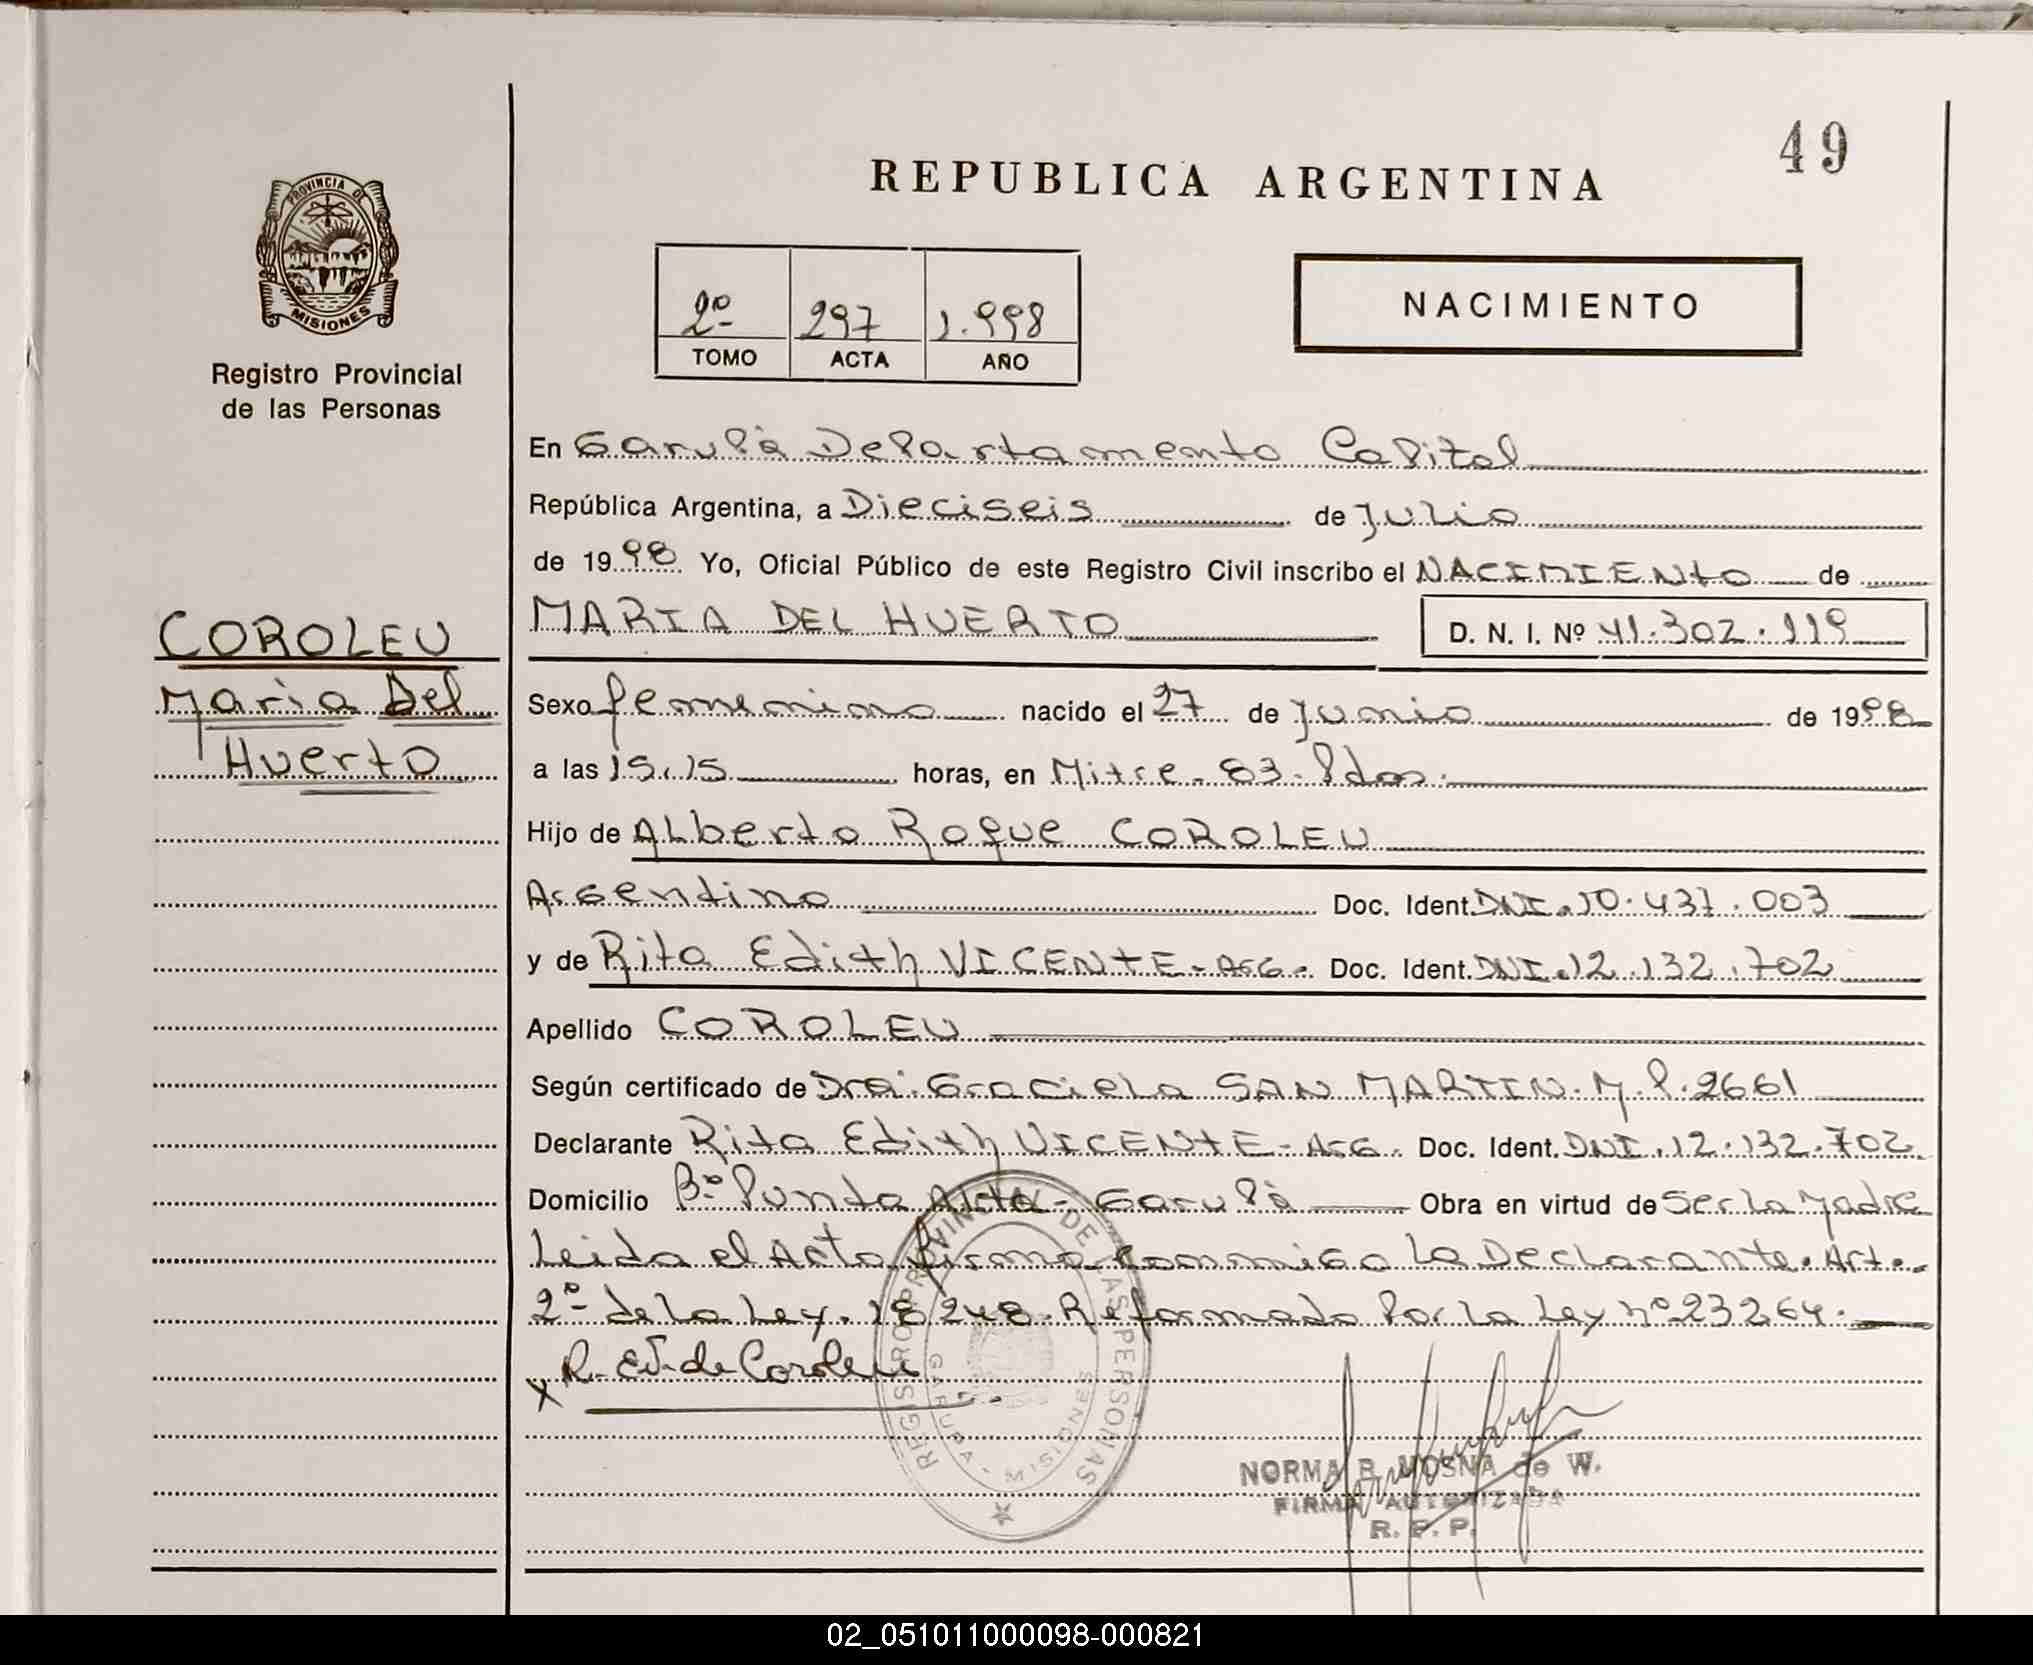 49
REPUBLICA ARGENTINA
PROVINCIA DE
MISIONES
Registro Provincial
de las Personas
2º 297 1.998
TOMO ACTA AÑO
NACIMIENTO
En Garupà Departamento Capital
República Argentina, a Dieciseis de Julio
de 1998 Yo, Oficial Público de este Registro Civil inscribo el NACIMIENTO de
MARIA DEL HUERTO D. N. I. Nº 41.302.119
COROLEU
Maria Del
Huerto
Sexo femenino nacido el 27 de Junio de 1998
a las 15.15 horas, en Mitre - 83 - Pdas.
Hijo de Alberto Roque COROLEU
Argentino Doc. Ident. DNI. 10.437.003
y de Rita Edith VICENTE - Arg. Doc. Ident. DNI. 12.132.702
Apellido COROLEU
Según certificado de Dra. Graciela SAN MARTIN. M.P. 2661
Declarante Rita Edith VICENTE - Arg. Doc. Ident. DNI. 12.132.702
Domicilio Bº Punta Alta - Garupà Obra en virtud de Ser la Madre
Leida el Acta firma conmigo la Declarante. Art.
2º de la Ley. 18248. Reformado Por la Ley nº 23264.
x R. E. V. de Coroleu
REGISTRO PROVINCIAL DE LAS PERSONAS
GARUPA - MISIONES
NORMA B. MOSNA de W.
FIRMA AUTORIZADA
R. P. P.
02_051011000098-000821